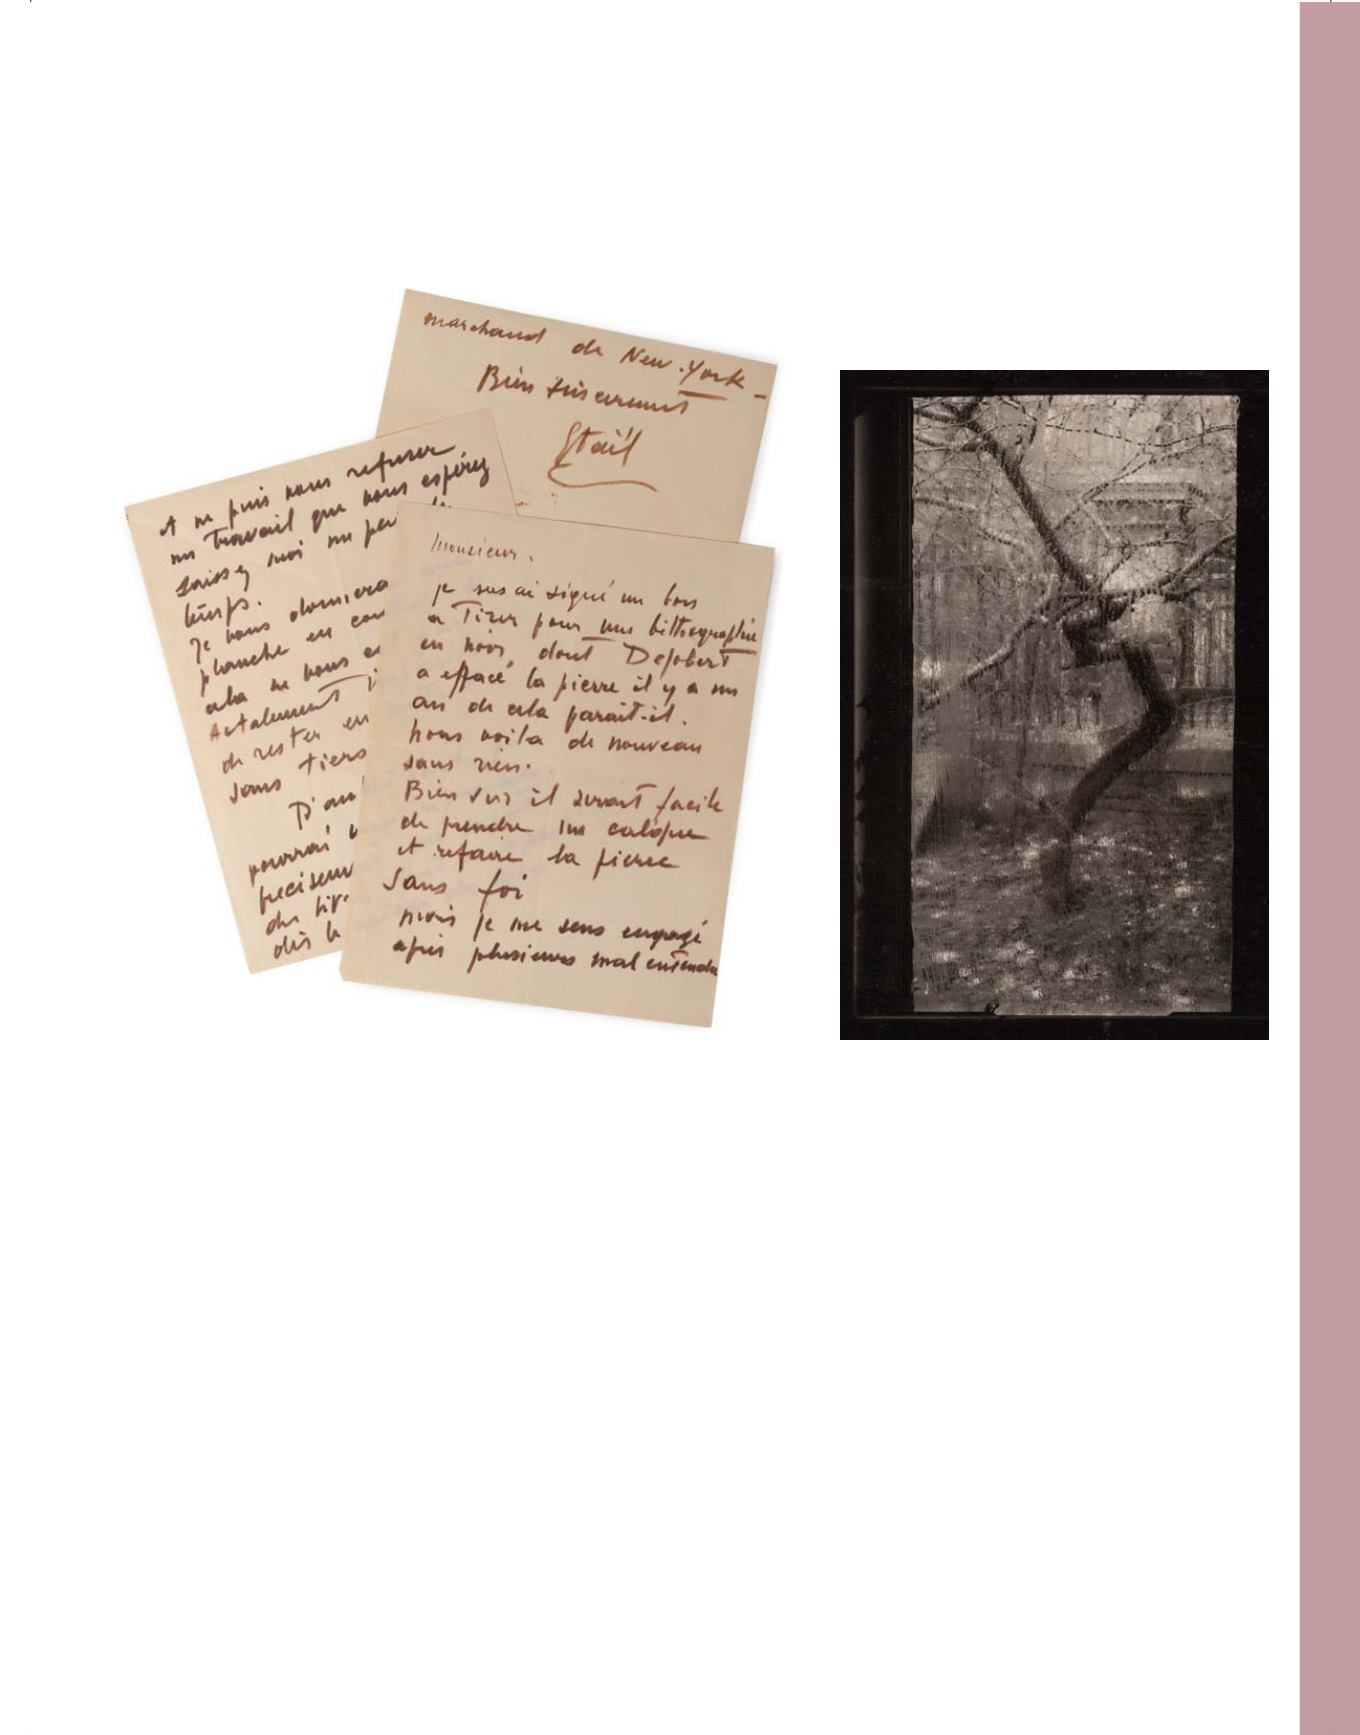 marchand de New-York -
Bien sincerement
Staël
et ne puis vous refuser
un travail que vous espérez
laissez moi un peu
temps.
Je vous donnerai
planche en
cela ne vous
Actalement
de rester en
sans tiers
D'au
pourrai
preciseme
des
dès le
Monsieur.
je sus ai signé un bon
a Tirer pour une lithographie
en noir, dont Dejobert
a effacé la pierre il y a un
an de cela parait-il.
Nous voila de nouveau
sans rien.
Bien sur il serait facile
de prendre un calque
et refaire la pierre
Sans foi
mais je me sens engagé
après plusieurs mal entendu